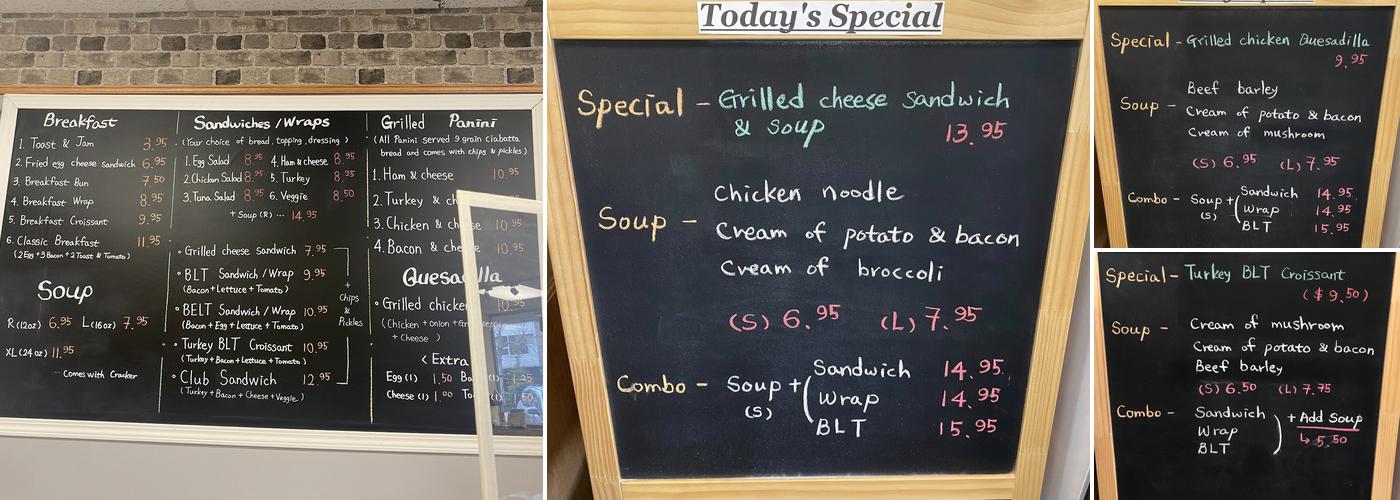 Breakfast
1. Toast & Jam 3.95
2. Fried egg cheese sandwich 6.95
3. Breakfast Bun 7.50
4. Breakfast Wrap 8.95
5. Breakfast Croissant 9.95
6. Classic Breakfast 11.95
(2 Egg + 3 Bacon + 2 Toast & Tomato)
Soup
R (12oz) 6.95 L (16oz) 7.95
XL (24 oz) 11.95
Comes with Cracker
Sandwiches / Wraps
(Your choice of bread, topping, dressing)
1. Egg Salad 8.95 4. Ham & cheese 8.95
2. Chicken Salad 8.95 5. Turkey 8.95
3. Tuna Salad 8.95 6. Veggie 8.50
+ Soup (R) ... 14.95
Grilled cheese sandwich 7.95
BLT Sandwich / Wrap 9.95
(Bacon + Lettuce + Tomato)
BELT Sandwich / Wrap 10.95
(Bacon + Egg + Lettuce + Tomato)
Turkey BLT Croissant 10.95
(Turkey + Bacon + Lettuce + Tomato)
Club Sandwich 12.95
(Turkey + Bacon + Cheese + Veggie)
+
Chips
&
Pickles
Grilled Panini
(All Panini served 9 grain ciabatta
bread and comes with chips & pickles)
1. Ham & cheese 10.95
2. Turkey & ch
3. Chicken & cheese 10.95
4. Bacon & cheese 10.95
Quesadilla
Grilled chicken 10.95
(Chicken + onion + Gr
+ Cheese)
< Extra
Egg (1) 1.50 Ba (1) 1.25
Cheese (1) 1.00 To (1) 1.50
Today's Special
Special - Grilled cheese sandwich
& soup 13.95
Chicken noodle
Soup - Cream of potato & bacon
Cream of broccoli
(S) 6.95 (L) 7.95
Sandwich 14.95
Combo - Soup + ( Wrap 14.95
(S) BLT 15.95
Special - Grilled chicken Quesadilla
9.95
Beef barley
Soup - Cream of potato & bacon
Cream of mushroom
(S) 6.95 (L) 7.95
Combo - Soup + ( Sandwich 14.95
(S) Wrap 14.95
BLT 15.95
Special - Turkey BLT Croissant
($ 9.50)
Soup - Cream of mushroom
Cream of potato & bacon
Beef barley
(S) 6.50 (L) 7.75
Combo - Sandwich ) + Add Soup
Wrap ↳ 5.50
BLT